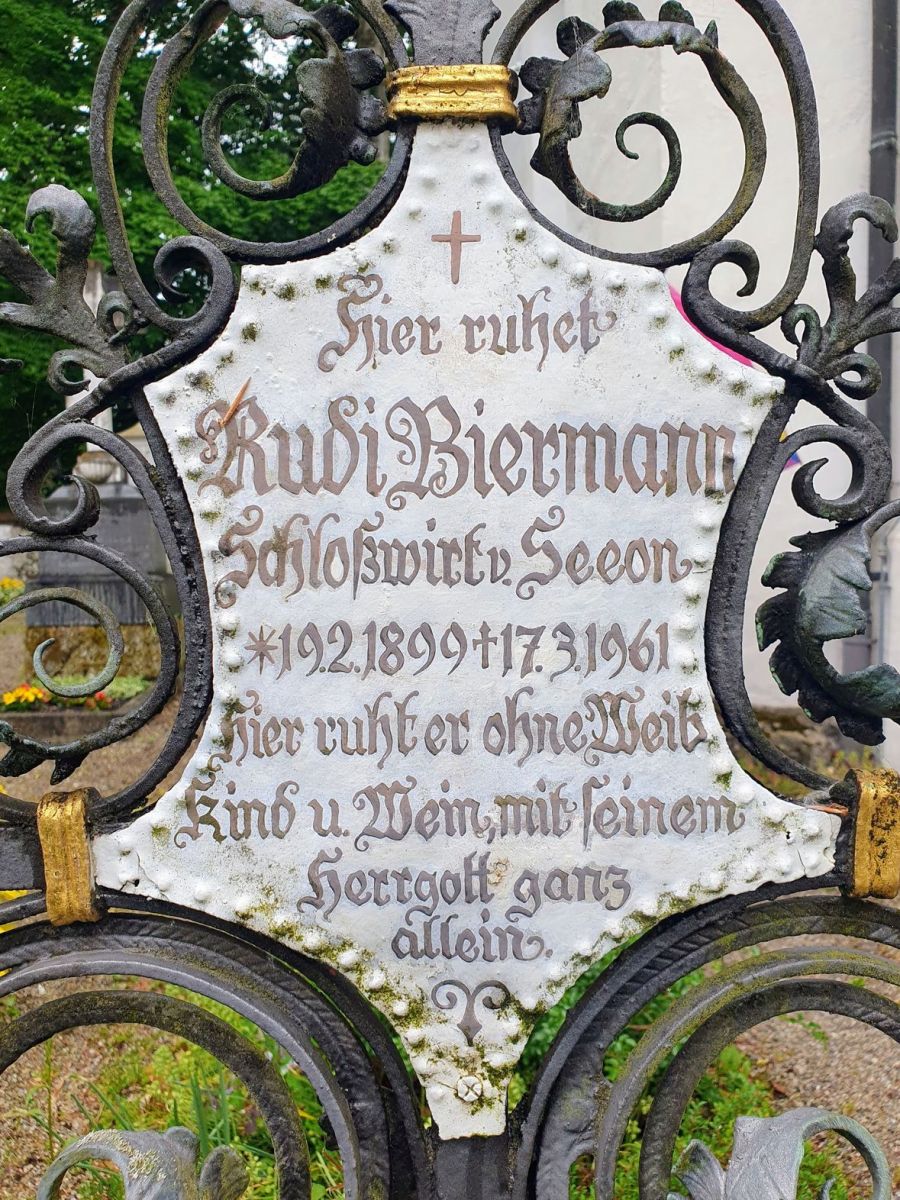 Hier ruhet
Rudi Biermann
Schloßwirt v. Seeon
*19.2.1899 †17.3.1961
Hier ruht er ohne Weib
Kind u. Wein, mit seinem
Herrgott ganz
allein.